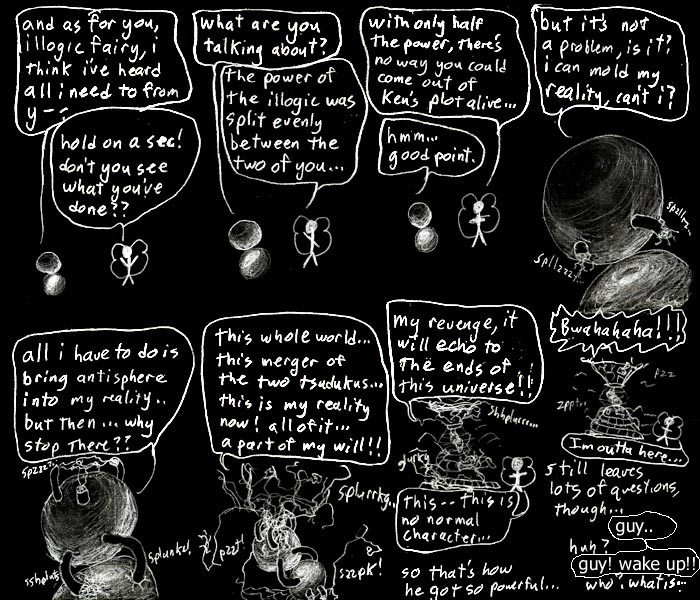 and as for you,
illogic fairy, i
think i've heard
all i need to from
y--
hold on a sec!
don't you see
what you've
done??
what are you
talking about?
the power of
the illogic was
split evenly
between the
two of you...
with only half
the power, there's
no way you could
come out of
Ken's plot alive...
hmm...
good point.
but it's not
a problem, is it?
i can mold my
reality, can't i?
spllzz..
spllzzz...
all i have to do is
bring antisphere
into my reality..
but then... why
stop there??
spzzz..
splunkt,
sshplutz
this whole world...
this merger of
the two tsudukus...
this is my reality
now! all of it...
a part of my will!!
splurrkg..
pzzt!
szzpk!
my revenge, it
will echo to
the ends of
this universe!!
shhplurrr...
glurkg
this -- this is
no normal
character...
so that's how
he got so powerful...
Bwahahaha!!!
pzz
zppt..
I'm outta here...
still leaves
lots of questions,
though...
guy..
huh?
guy! wake up!!
who.. what is...